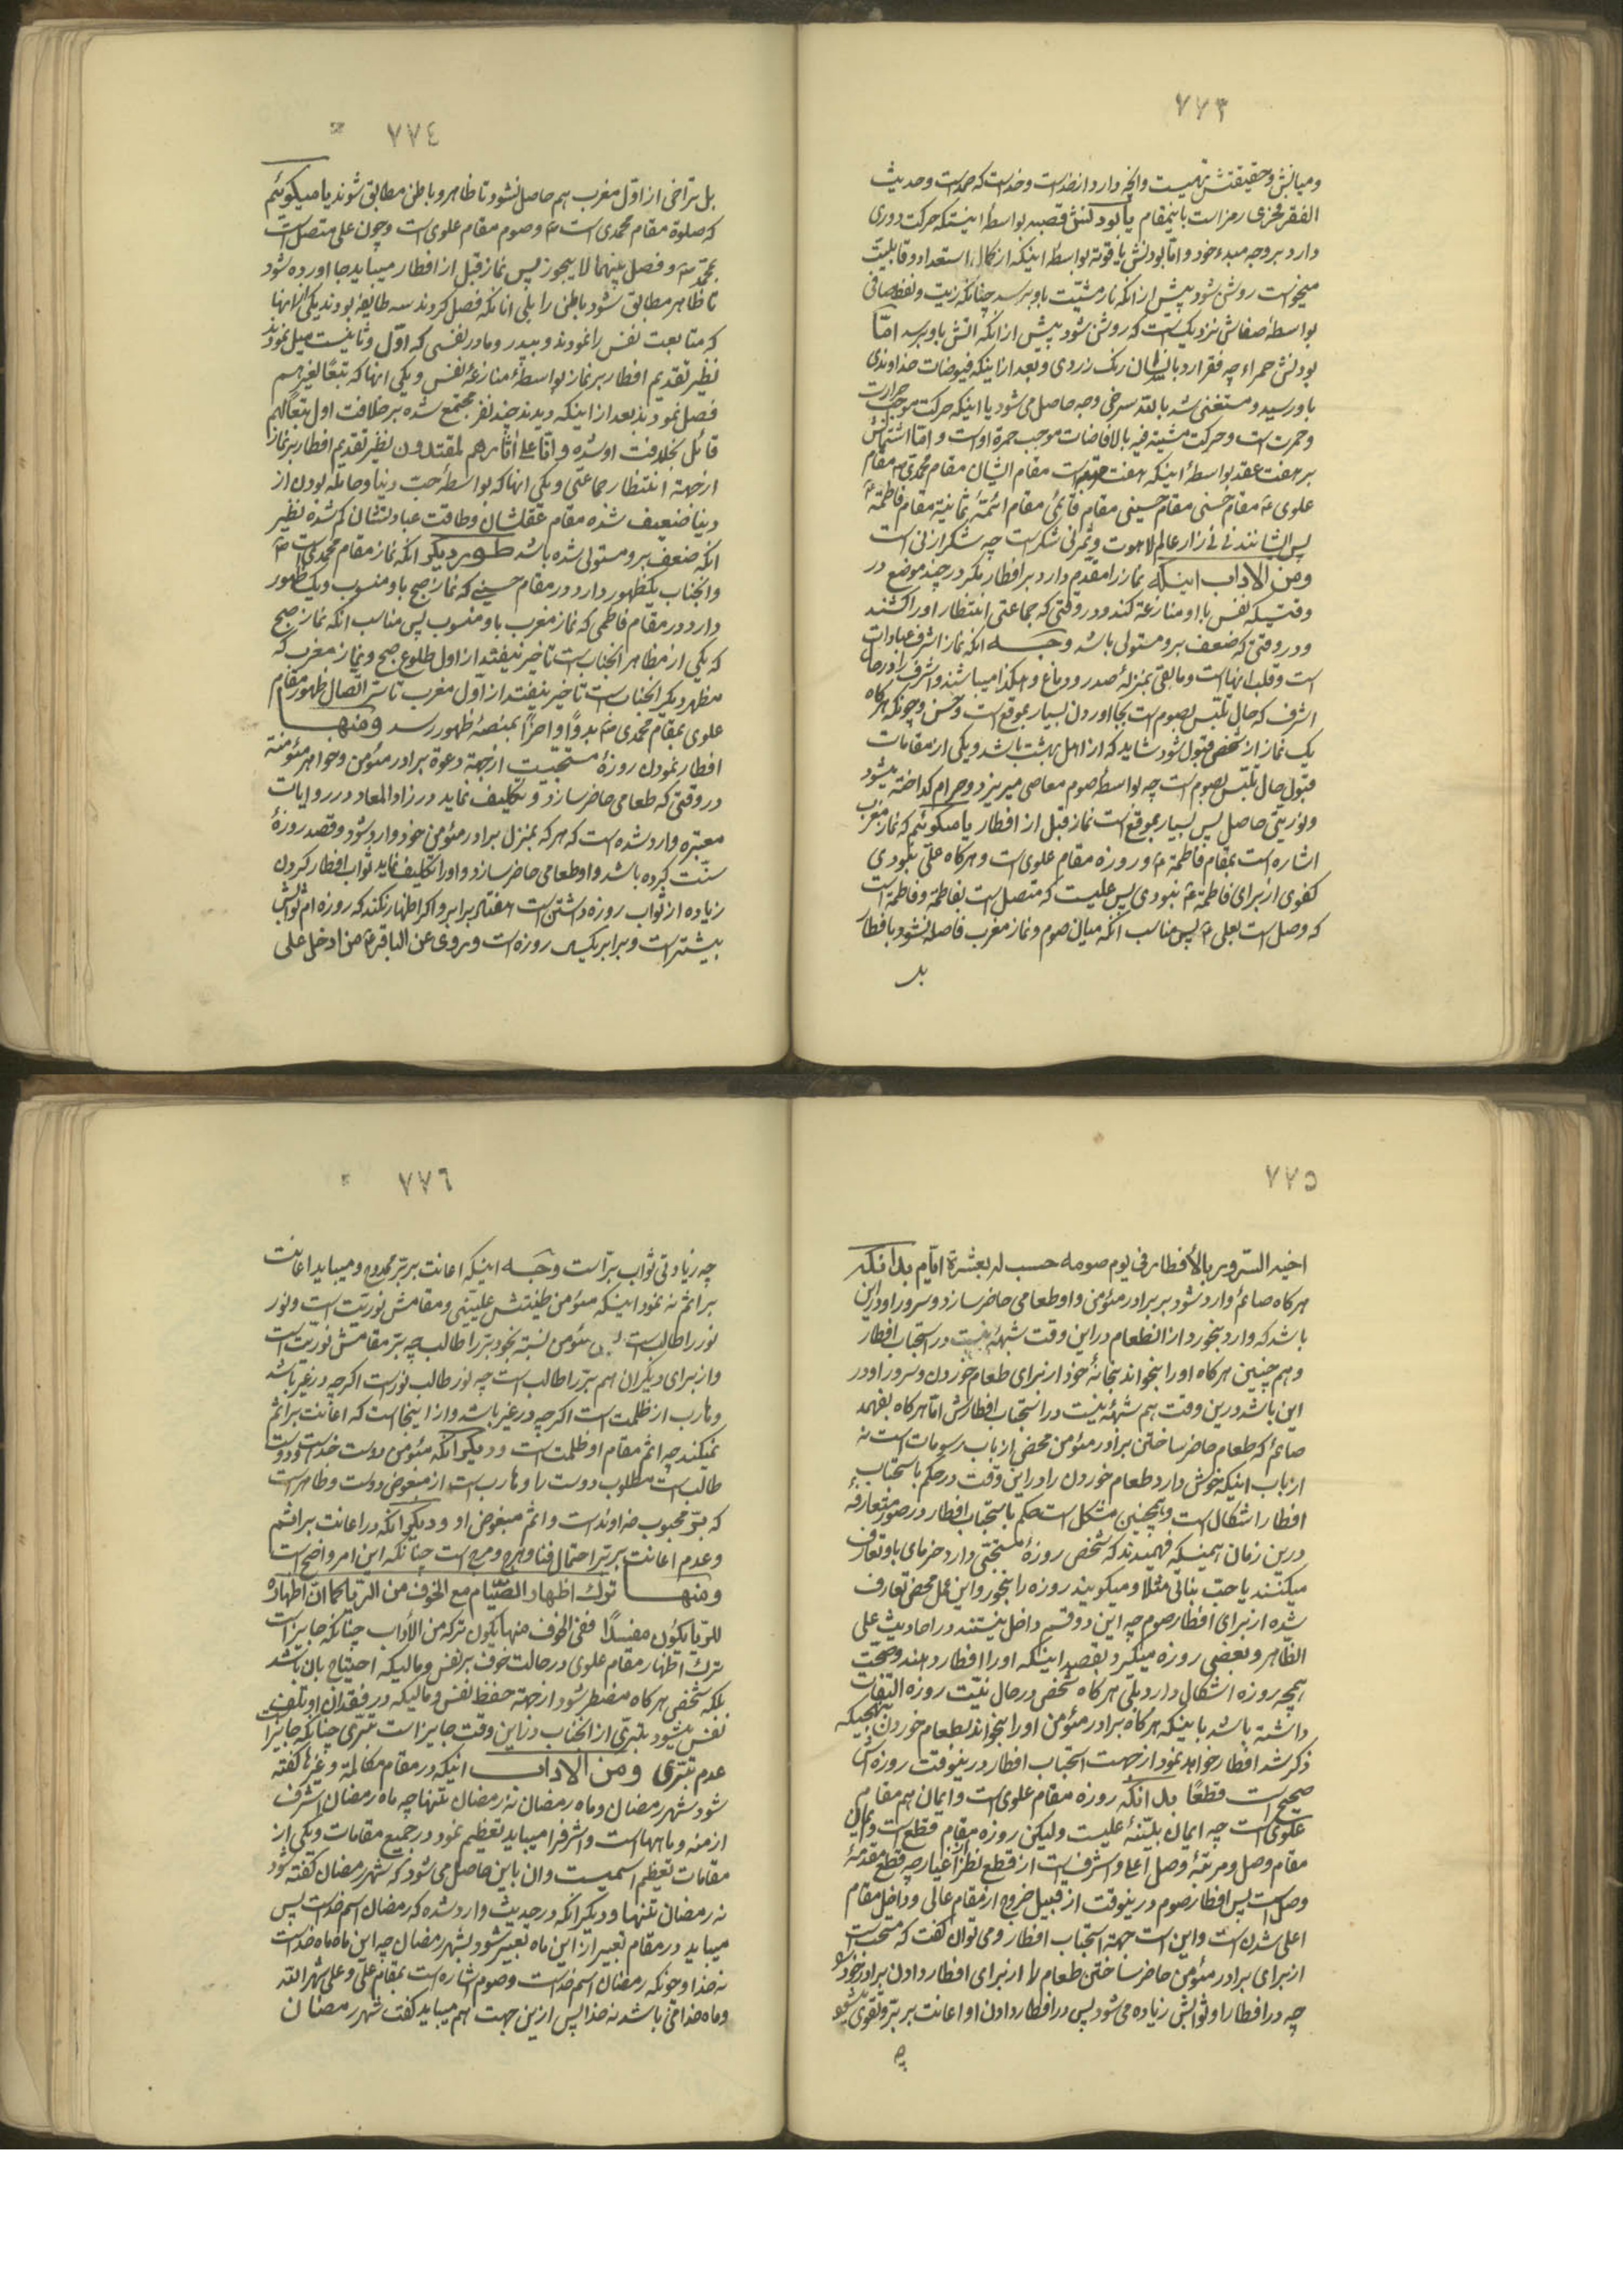 ٧٧٣
ومیانش وحقیقتش تهیست وانچه دارد از خداست وخداست که صمد است وحدیث
الفقر فخری رمز است باینمقام یا بودنش قصبه بواسطهٔ اینستکه حرکت دوری
دارد بر وجه مبدء خود واما بودنش یاقوته بواسطهٔ اینکه از کمال استعداد وقابلیت
میخواست روشن شود پیش از انکه نار مشیت باو برسد چنانکه زیت ونفط صافی
بواسطهٔ صفائش نزدیکست که روشن شود پیش از انکه اتش باو برسد اما
بودنش حمراء چه فقر ارد بالایشان رنک زردی وبعد از اینکه فیوضات خداوندی
باو رسید ومستغنی شد بالله سرخی وجه حاصل می شود یا اینکه حرکت موجب حرارت
وحمرت است وحرکت مشیته فیه بالافاضات موجب حمرة اوست واما اشتمالش
بر هفت عقد بواسطهٔ اینکه هفت مقامست مقام ایشان مقام محمدی ص مقام
علوی ع مقام حسنی مقام حسینی مقام قائمی مقام ائمهٔ ثمانیة مقام فاطمة ع
پس ایشانند نی نی زار عالم لاهوت وثمر نی شکر است چه شکر از نی است
ومن الاداب اینکه نماز را مقدم دارد بر افطار مکر در چند موضع در
وقتیکه نفس با او منازعة کند ودر وقتی که جماعتی انتظار او را کشند
ودر وقتی که ضعف بر و مستولی باشد وجه انکه نماز اشرف عبادات
است وقلب انها است ومابقی بمنزلهٔ صدر ودماغ وهکذا میباشند واشرف را در حال
اشرف که حال تلبس بصوم است بجا اوردن بسیار بموقع است وحسن وچونکه هرکاه
یک نماز از شخص قبول شود شاید که از اهل بهشت باشد ویکی از مقامات
قبول حال تلبس بصوم است چه بواسطهٔ صوم معاصی میریزد وحرام کداخته میشود
ونوریتی حاصل پس بسیار بموقع است نماز قبل از افطار یا میکوئیم که نماز مغرب
اشاره است بمقام فاطمة ع وروزه مقام علوی است وهرکاه علی نبودی
کفوی از برای فاطمة ع نبودی پس علیست که متصل است بفاطمة وفاطمة است
که وصل است بعلی ع پس مناسب انکه میان صوم ونماز مغرب فاصله نشود بافطار
بل
٧٧٤
بل بتراخی از اول مغرب هم حاصل نشود تا ظاهر وباطن مطابق شوند یا میکوئیم
که صلوة مقام محمدی است ص وصوم مقام علوی است وچون علی متصل است
بمحمد ص وفصل بینهما لا یجوز پس نماز قبل از افطار میباید بجا اورده شود
تا ظاهر مطابق شود باطن را بلی انانکه فصل کردند سه طایفهٔ بودند یکی انها
که متابعت نفس را نمودند وبپدر ومادر نفسی که اول وثانیست میل نمودند
نظیر تقدیم افطار بر نماز بواسطهٔ منازعهٔ نفس ویکی انها که تبعًا لغیرهم
فصل نمودند بعد از اینکه دیدند چند نفر مجتمع شده بر خلافت اول تبعًا لهم
قائل بخلافت او شده وانا علی اثارهم لمقتدون نظیر تقدیم افطار بر نماز
از جهة انتظار جماعتی ویکی انها که بواسطهٔ حب دنیا وحامله بودن از
دنیا ضعیف شده مقام عقلشان وطاقت عبادتشان کم شده نظیر
انکه ضعف بر و مستولی شده باشد طور دیکر انکه نماز مقام محمدی است ص
وانجناب یکظهور دارد در مقام حسینی که نماز صبح باو منسوب ویک ظهور
دارد در مقام فاطمی که نماز مغرب باو منسوب پس مناسب انکه نماز صبح
که یکی از مظاهر انجناب است تاخیر نیفتد از اول طلوع صبح ونماز مغرب که
مظهر دیکر انجناب است تاخیر نیفتد از اول مغرب تا سر اتصال ظهور مقام
علوی بمقام محمدی ص بدوًا واخرًا بمنصهٔ ظهور رسد ومنها
افطار نمودن روزهٔ مستحبیست از جهة دعوة برادر مؤمن وخواهر مؤمنة
در وقتی که طعامی حاضر سازد وتکلیف نماید در زاد المعاد در روایات
معتبره وارد شده است که هر که بمنزل برادر مؤمن خود وارد شود وقصد روزهٔ
سنت کرده باشد واو طعامی حاضر سازد واو را تکلیف نماید ثواب افطار کردن
زیاده از ثواب روزه داشتن است هفتاد برابر واکر اظهار نکند که روزه ام ثوابش
بیشتر است وبرابر یکسال روزه است وروی عن الباقر ع من ادخل علی
٧٧٥
اخیه السرور بالأفطار فی یوم صومه حسب له بعشرة ایام بدانکه
هرکاه صائم وارد شود بر برادر مؤمن واو طعامی حاضر سازد وسرور او در این
باشد که وارد بخورد از ان طعام در این وقت شبههٔ نیست در استحباب افطار
وهم چنین هرکاه او را بخواند بخانهٔ خود از برای طعام خوردن وسرور او در
این باشد درین وقت هم شبههٔ نیست در استحباب افطارش اما هرکاه بفهمد
صائم که طعام حاضر ساختن برادر مؤمن محض از باب رسومات است نه
از باب اینکه خوش دارد طعام خوردن را در این وقت در حکم باستحباب
افطار اشکال است وهمچنین مشکل است حکم باستحباب افطار در صور متعارفه
درین زمان همینکه فهمیدند که شخص روزهٔ مستحبی دارد خرمای باو تعارف
میکنند یا حب نباتی مثلا ومیکویند روزه را بخور واین عمل محض تعارف
شده از برای افطار صوم چه این دو قسم داخل نیستند در احادیث علی
الظاهر وبعضی روزه میکیرد بقصد اینکه او را افطار دهند وصحت
همچه روزه اشکالی دارد بلی هرکاه شخص در حال نیت روزه التفات
داشته باشد باینکه هرکاه برادر مؤمن او را بخواند بطعام خوردن بنهجیکه
ذکر شد افطار خواهد نمود از جهت استحباب افطار درینوقت روزه اش
صحیح است قطعًا بدانکه روزه مقام علوی است وایمان هم مقام
علوی است چه ایمان بلسنهٔ علیست ولیکن روزه مقام قطع است وایمان
مقام وصل ومرتبهٔ وصل اعلی واشرفست از قطع نظر از اغیار چه قطع مقدمهٔ
وصل است پس افطار صوم درینوقت از قبیل خروج از مقام عالی وداخل مقام
اعلی شدن است واین است جهة استحباب افطار ومی توان کفت که مستحب است
از برای برادر مؤمن حاضر ساختن طعام را از برای افطار دادن برادر خود
چه در افطار او ثوابش زیاده می شود پس در افطار دادن او اعانت بر بر وتقوی میشود
چه
٧٧٦
چه زیادتی ثواب بر است وجه اینکه اعانت بر بر ممدوح ومیباید اعانت
بر اثم نه نمود اینکه مؤمن طینتش علیینی ومقامش نوریت است ونور
نور را طالب است مؤمن نسبة بخود بر را طالب چه بر مقامش نوریت است
واز برای دیکران هم بر را طالب است چه نور طالب نور است اکرچه در غیر باشد
وهارب از ظلمت است اکرچه در غیر باشد واز اینجا است که اعانت بر اثم
نمیکند چه اثم مقام او ظلمت است ودیکر انکه مؤمن دوست خداست ودوست
طالب است مطلوب دوست را وهارب است از مبغوض دوست وظاهر است
که بر محبوب خداوند است واثم مبغوض او ودیکر انکه در اعانت بر اثم
وعدم اعانت بر بر احتمال فنا وهرج ومرج است چنانکه این امر واضح است
ومنها ترك اظهار الصیام مع الخوف من الریا کما ان اظهاره
للریا یکون مفسدًا ففی الخوف منها یکون ترکه من الأداب چنانکه جایز است
ترك اظهار مقام علوی در حالت خوف بر نفس ومالیکه احتیاج بان باشد
بلکه شخص هرکاه مضطر شود از جهة حفظ نفس ومالیکه در فقدان او تلف
نفس میشود بتبری از انجناب در این وقت جایز است تبری چنانکه جایز است
عدم تبری ومن الاداب اینکه در مقام مکالمة وغیرها کفته
شود شهر رمضان وماه رمضان نه رمضان تنها چه ماه رمضان اشرف
ازمنه وماهها است واشرف را میباید تعظیم نمود در جمیع مقامات ویکی از
مقامات تعظیم اسمیست وان باین حاصل می شود که شهر رمضان کفته شود
نه رمضان تنها ودیکر انکه در حدیث وارد شده که رمضان اسم خداست پس
میباید در مقام تعبیر از این ماه تعبیر شود بشهر رمضان چه این ماه ماه خداست
نه خدا وچونکه رمضان اسم خداست وصوم اشاره است بمقام علی وعلی شهر الله
وماه خدائی باشد نه خدا پس ازین جهت هم میباید کفت شهر رمضان